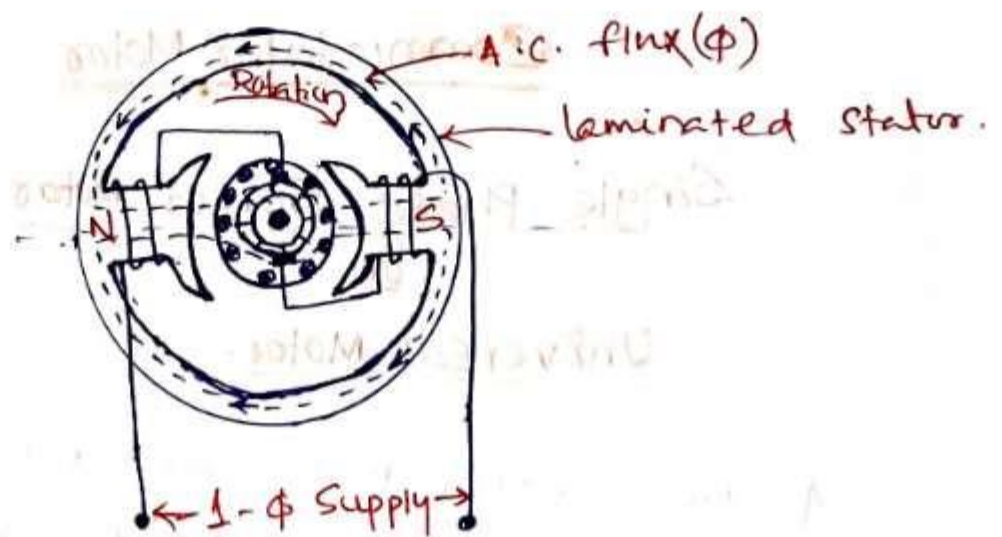 A.C. flux(ϕ)
Rotation
laminated stator.
N
S
1-ϕ Supply